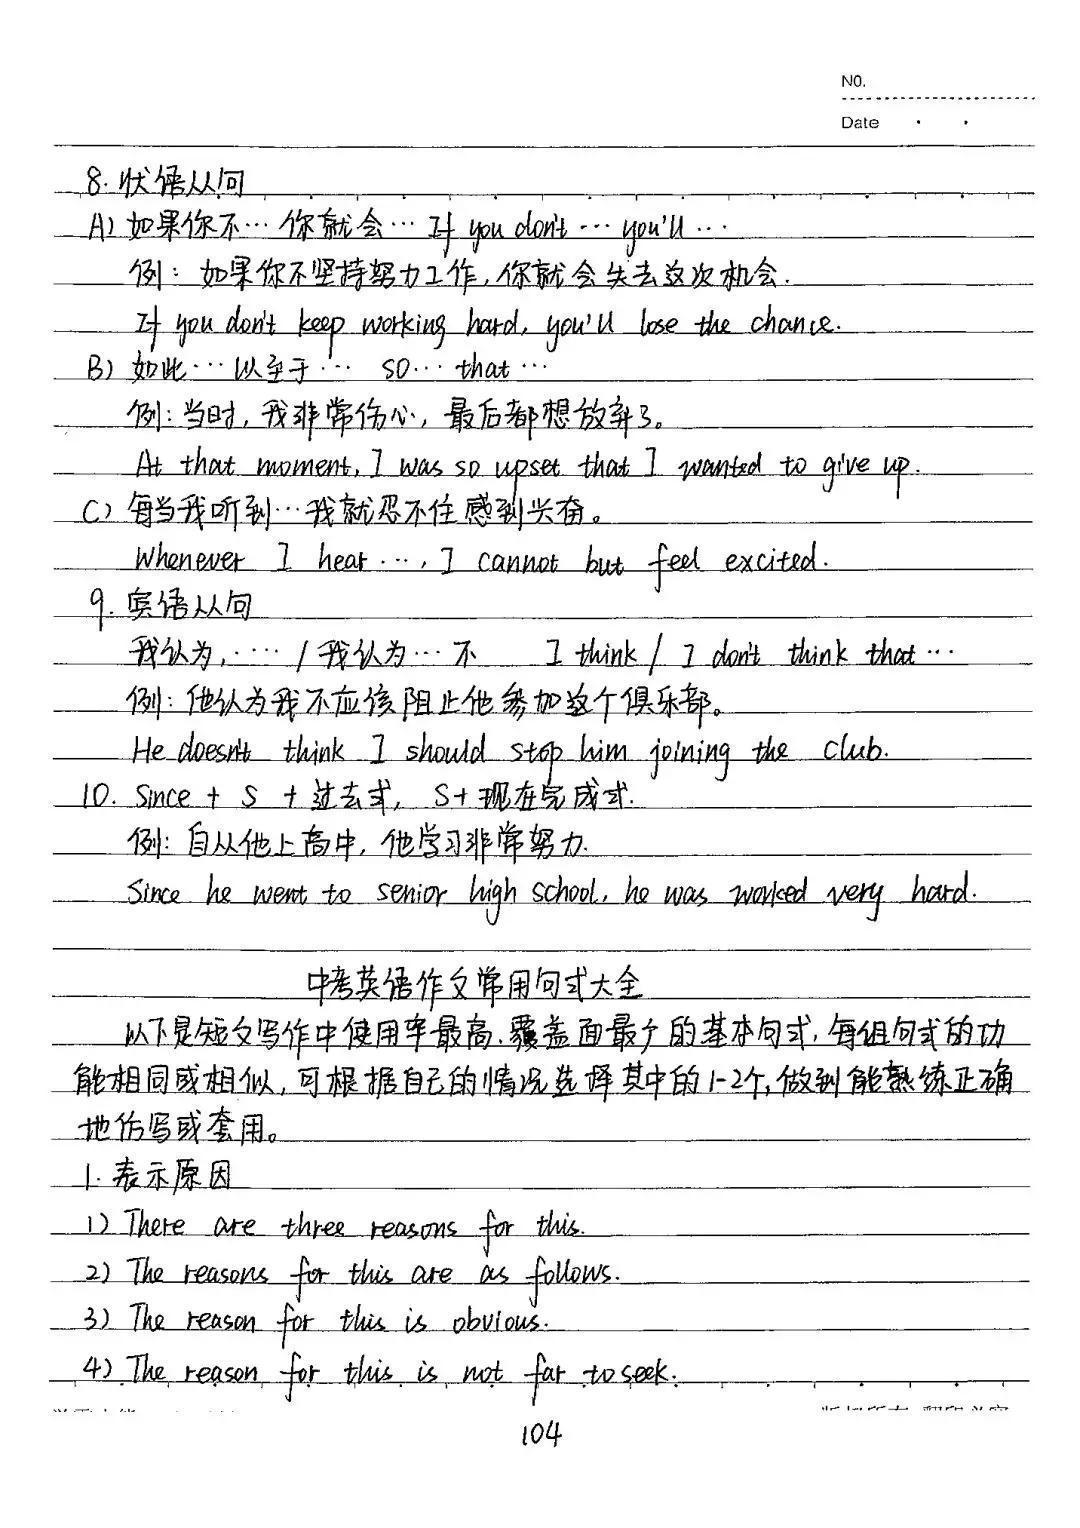 NO.
Date
8. 状语从句
A) 如果你不… 你就会… If you don't … you'll …
例: 如果你不坚持努力工作, 你就会失去这次机会.
If you don't keep working hard, you'll lose the chance.
B) 如此… 以至于… so… that …
例: 当时, 我非常伤心, 最后都想放弃了。
At that moment, I was so upset that I wanted to give up.
C) 每当我听到…我就忍不住感到兴奋。
Whenever I hear …, I cannot but feel excited.
9. 宾语从句
我认为, …… / 我认为… 不 I think / I don't think that …
例: 他认为我不应该阻止他参加这个俱乐部。
He doesn't think I should stop him joining the club.
10. Since + S + 过去式, S+现在完成式.
例: 自从他上高中, 他学习非常努力.
Since he went to senior high school, he was worked very hard.
中考英语作文常用句式大全
以下是短文写作中使用率最高、覆盖面最广的基本句式, 每组句式的功
能相同或相似, 可根据自己的情况选择其中的1-2个, 做到能熟练正确
地仿写或套用。
1. 表示原因
1) There are three reasons for this.
2) The reasons for this are as follows.
3) The reason for this is obvious.
4) The reason for this is not far to seek.
104